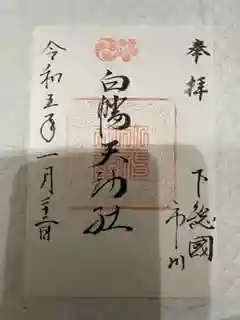 奉拝
下総國
市川
白幡天神社
令和五年一月三日